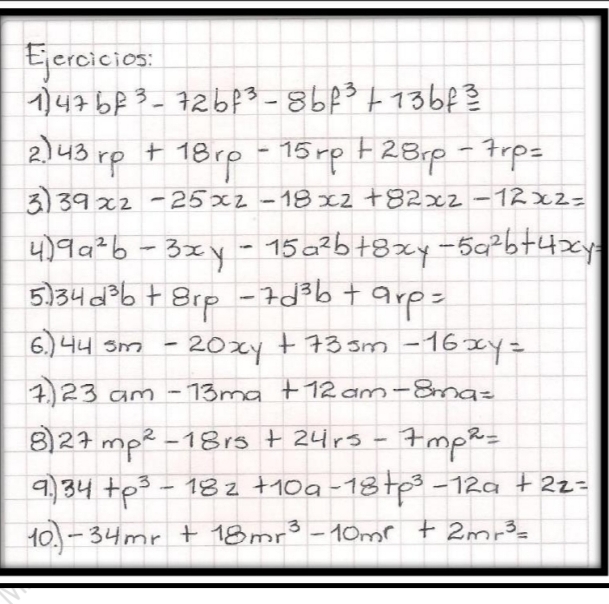 Ejercicios:
1) 47bf³ - 72bf³ - 8bf³ + 13bf³=
2.) 43rp + 18rp - 15rp + 28rp - 7rp=
3.) 39xz - 25xz - 18xz + 82xz - 12xz=
4) 9a²b - 3xy - 15a²b + 8xy - 5a²b + 4xy=
5.) 34d³b + 8rp - 7d³b + 9rp=
6.) 44sm - 20xy + 73sm - 16xy=
7.) 23am - 13ma + 12am - 8ma=
8) 27mp² - 18rs + 24rs - 7mp²=
9.) 34tp³ - 18z + 10a - 18tp³ - 12a + 2z=
10.) -34mr + 18mr³ - 10mr + 2mr³=